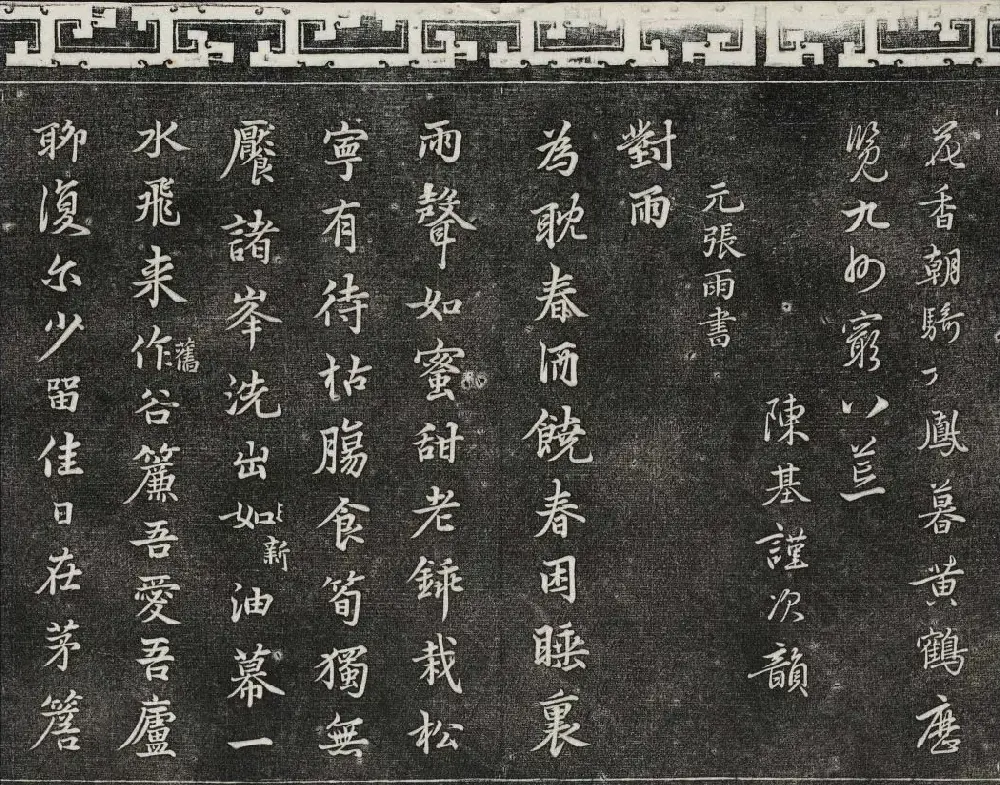 花香朝騎鳳暮黃鶴歷
覽九州窮八荒
陳基謹次韻
元張雨書
對雨
為耽春酒饒春困睡裏
雨聲如蜜甜老鍤栽松
寧有待枯腸食筍獨無
饜諸峯洗出如新油幕一
水飛来作舊谷簾吾愛吾廬
聊復尔少留佳日在茅簷